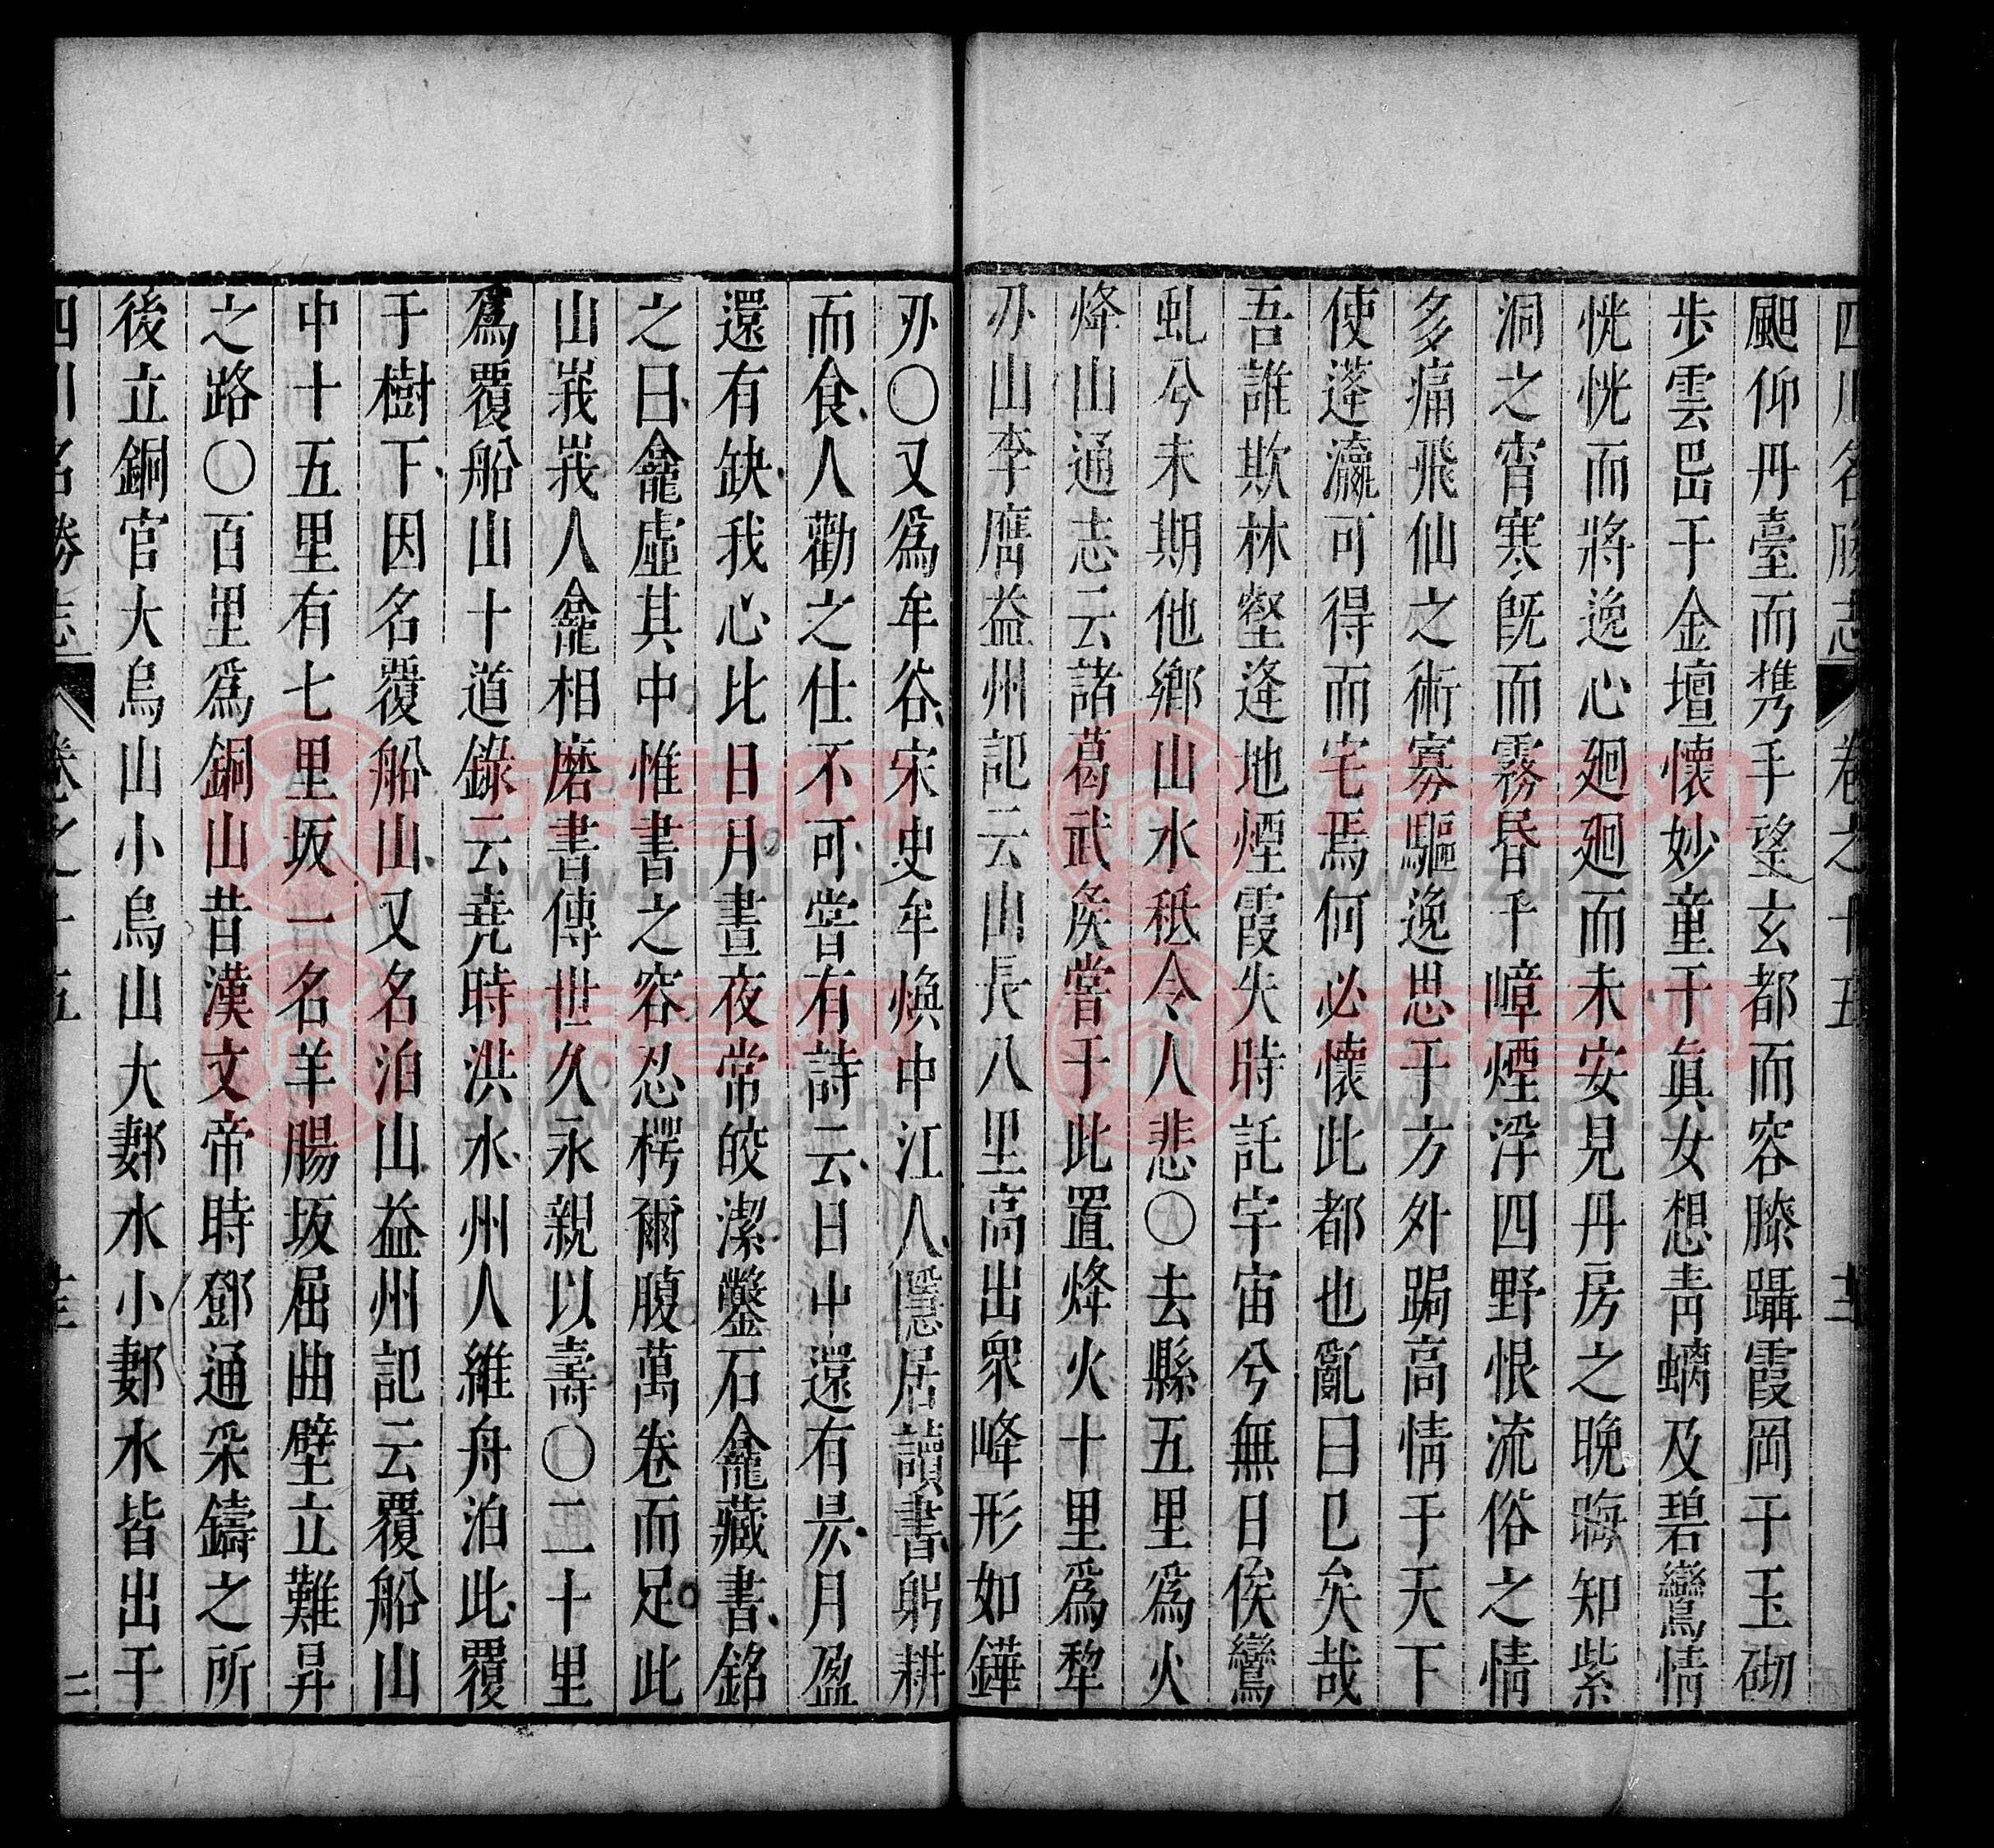 四川名勝志 卷之十五
颶仰丹臺而携手望玄都而容膝躡霞岡于玉砌
步雲嵒于金壇懷妙童于眞女想靑螭及碧鸞情
恍恍而將逸心廻廻而未安見丹房之晩晦知紫
洞之宵寒旣而霧昏千嶂煙浮四野恨流俗之情
多痛飛仙之術寡驅逸思于方外跼高情于天下
使蓬瀛可得而宅焉何必懷此都也亂曰已矣哉
吾誰欺林壑逢地煙霞失時託宇宙兮無日俟鸞
虬兮未期他鄉山水秪令人悲〇去縣五里爲火
烽山通志云諸葛武侯嘗于此置烽火十里爲犂
刅山李膺益州記云山長八里高出衆峰形如鏵
刅〇又爲牟谷宋史牟煥中江人隱居讀書躬耕
而食人勸之仕不可嘗有詩云日中還有昃月盈
還有缺我心比日月晝夜常皎潔鑿石龕藏書銘
之曰龕虛其中惟書之容忍樗爾腹萬卷而足此
山峩峩人龕相磨書傳世久永親以壽〇二十里
爲覆船山十道錄云堯時洪水州人維舟泊此覆
于樹下因名覆船山又名泊山益州記云覆船山
中十五里有七里坂一名羊腸坂屈曲壁立難昇
之路〇百里爲銅山昔漢文帝時鄧通采鑄之所
後立銅官大烏山小烏山大鄻水小鄻水皆出于
四川名勝志 卷之十五
族譜网
www.zupu.cn
族譜网
www.zupu.cn
族譜网
www.zupu.cn
族譜网
www.zupu.cn